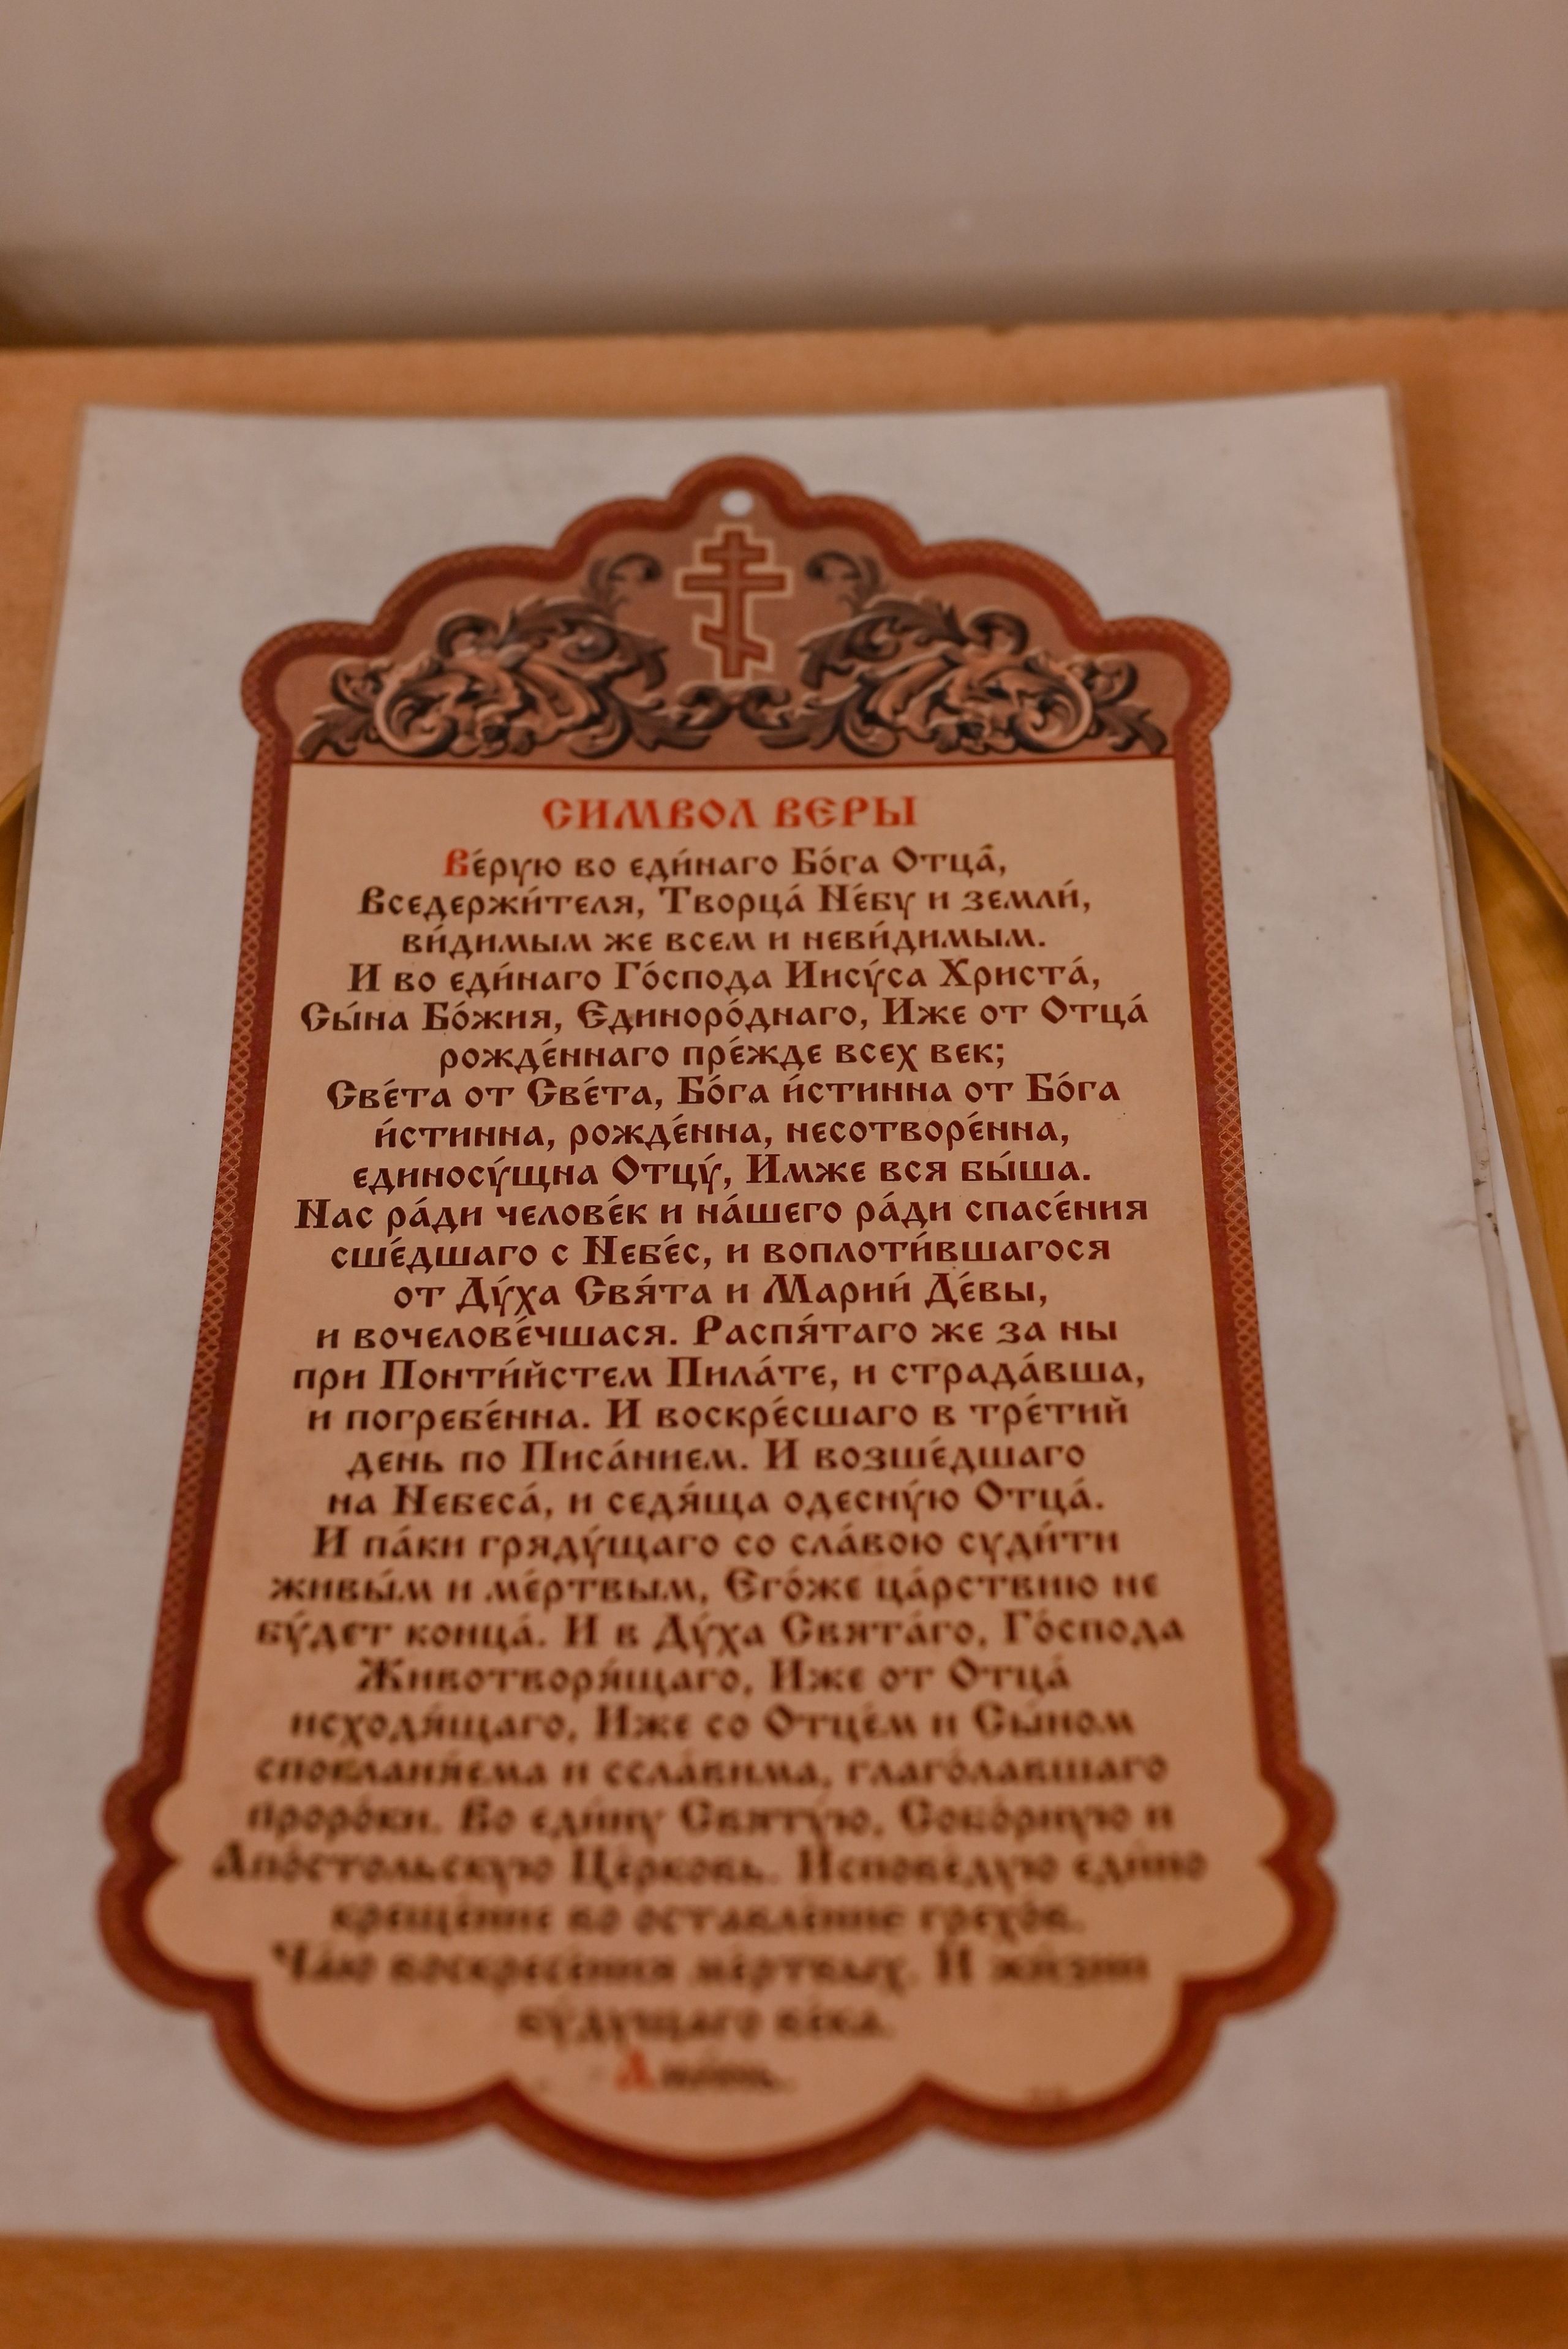 СИМВОЛ ВЕРЫ
Ве́рую во еди́наго Бо́га Отца́,
Вседержи́теля, Творца́ Не́бу и земли́,
ви́димым же всем и неви́димым.
И во еди́наго Го́спода Иису́са Христа́,
Сы́на Бо́жия, Единоро́днаго, Иже от Отца́
рожде́ннаго пре́жде всех век;
Све́та от Све́та, Бо́га и́стинна от Бо́га
и́стинна, рожде́нна, несотворе́нна,
единосу́щна Отцу́, Имже вся бы́ша.
Нас ра́ди челове́к и на́шего ра́ди спасе́ния
сше́дшаго с Небе́с, и воплоти́вшагося
от Ду́ха Свя́та и Марии́ Де́вы,
и вочелове́чшася. Распя́таго же за ны
при Понти́йстем Пила́те, и страда́вша,
и погребе́нна. И воскре́сшаго в тре́тий
день по Писа́нием. И возше́дшаго
на Небеса́, и седя́ща одесну́ю Отца́.
И па́ки гряду́щаго со сла́вою суди́ти
живы́м и ме́ртвым, Его́же ца́рствию не
бу́дет конца́. И в Ду́ха Свята́го, Го́спода
Животворя́щаго, Иже от Отца́
исходя́щаго, Иже со Отце́м и Сы́ном
спокланя́ема и ссла́вима, глаго́лавшаго
проро́ки. Во еди́ну Святу́ю, Собо́рную и
Апо́стольскую Це́рковь. Испове́дую еди́но
креще́ние во оставле́ние грехо́в.
Ча́ю воскресе́ния ме́ртвых. И жи́зни
бу́дущаго ве́ка.
Ами́нь.